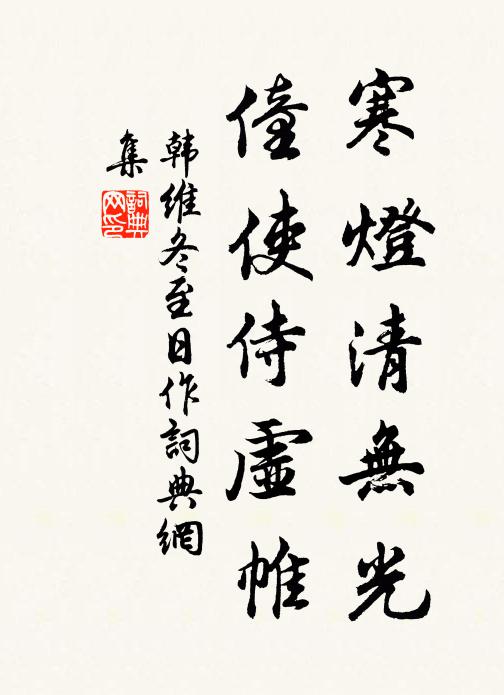 寒燈清無光
僮使侍虛帷
韩维冬至日作詞典網
集
詞典
网印